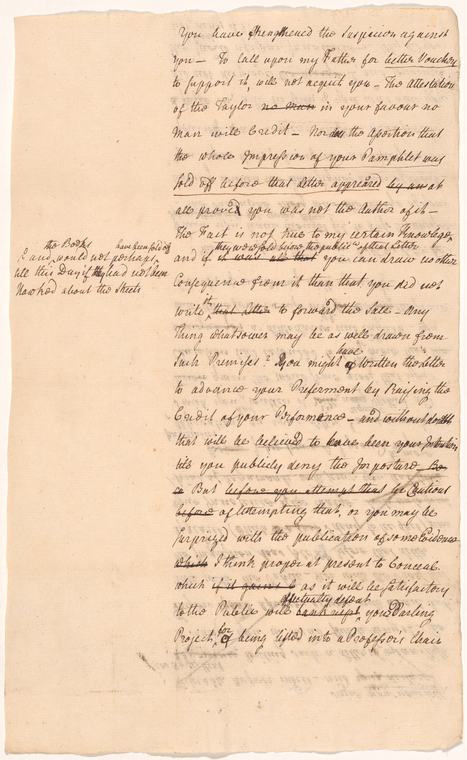 You have strengthened the Suspicion against
you – To Call upon my Father for better Vouchers
to Support it, will not acquit you – The Attestation
of the Taylor no man in your favour no
man will Credit – Nor does the Assertion that
the whole Impression of your Pamphlet was
sold off before that letter appeared by us at
all proves you was not the Author of it –
The Fact is not true to my certain Knowledge,
the Books have been sold off
& and would not perhaps
till this Day if they had not been
Hawked about the Streets
they were sold before the publicn of that letter
and if it was as that you can draw no other
Consequence from it than that you did not
write it that letter to forward the Sale – Any
thing whatsoever may be as well drawn from
Such Premisses? You might have written the letter
to advance your Preferment by Raising the
Credit of your Performance – and without doubt
that will be believed to have been your
till you publicly deny the Imposture
But before you attempt that be Cautious
before of attempting that, or you may be
Surprized with the publication of some Evidence
which I think proper at present to Conceal
which if it as it will be Satisfactory
effectually defeat
to the Public will your Darling
Project, for of being lifted into a Professors Chair